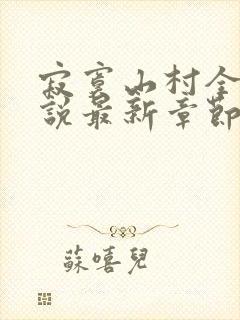 寂寞山村全
說最新章節
蘇嘻兒